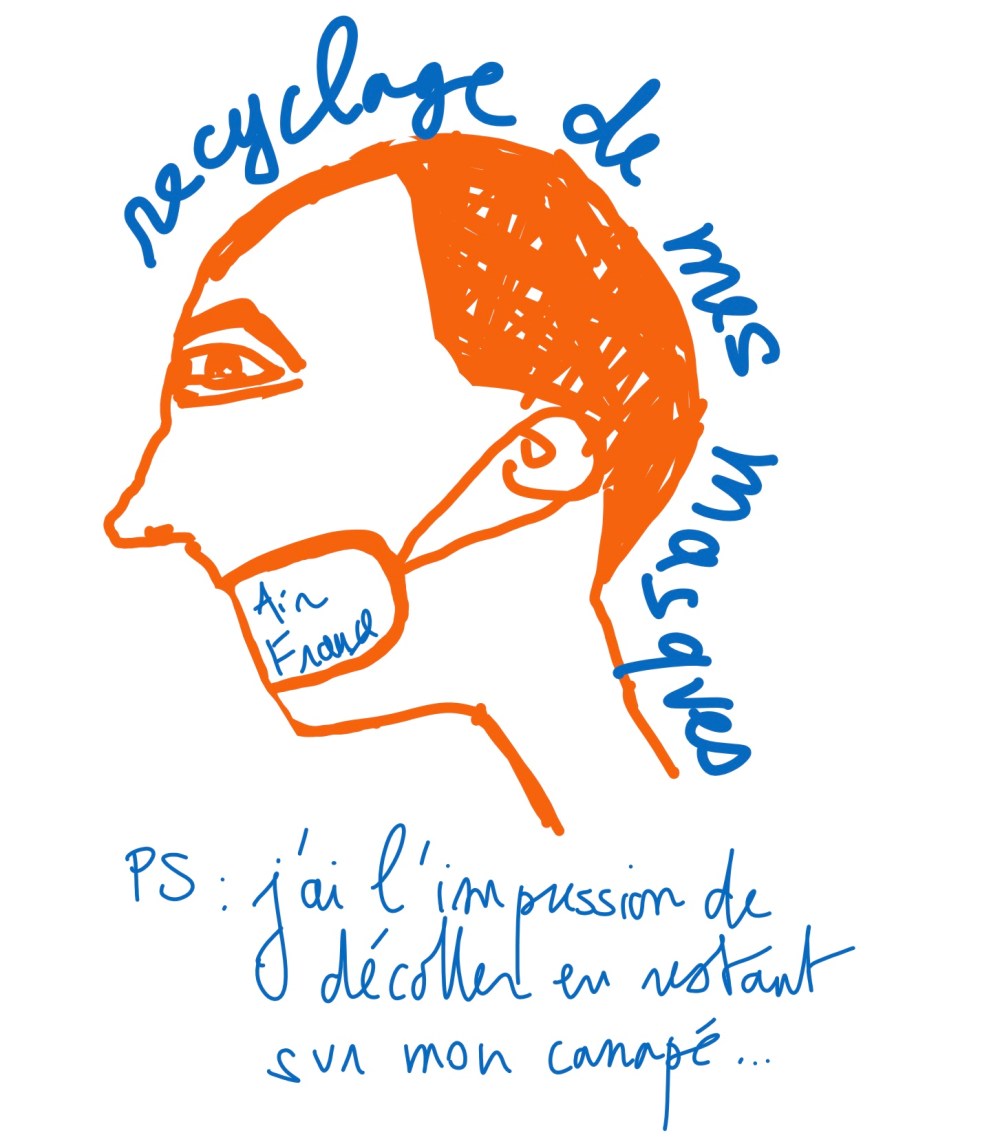 recyclage de mes masques
Air
France
PS : j'ai l'impression de
décoller en restant
sur mon canapé...